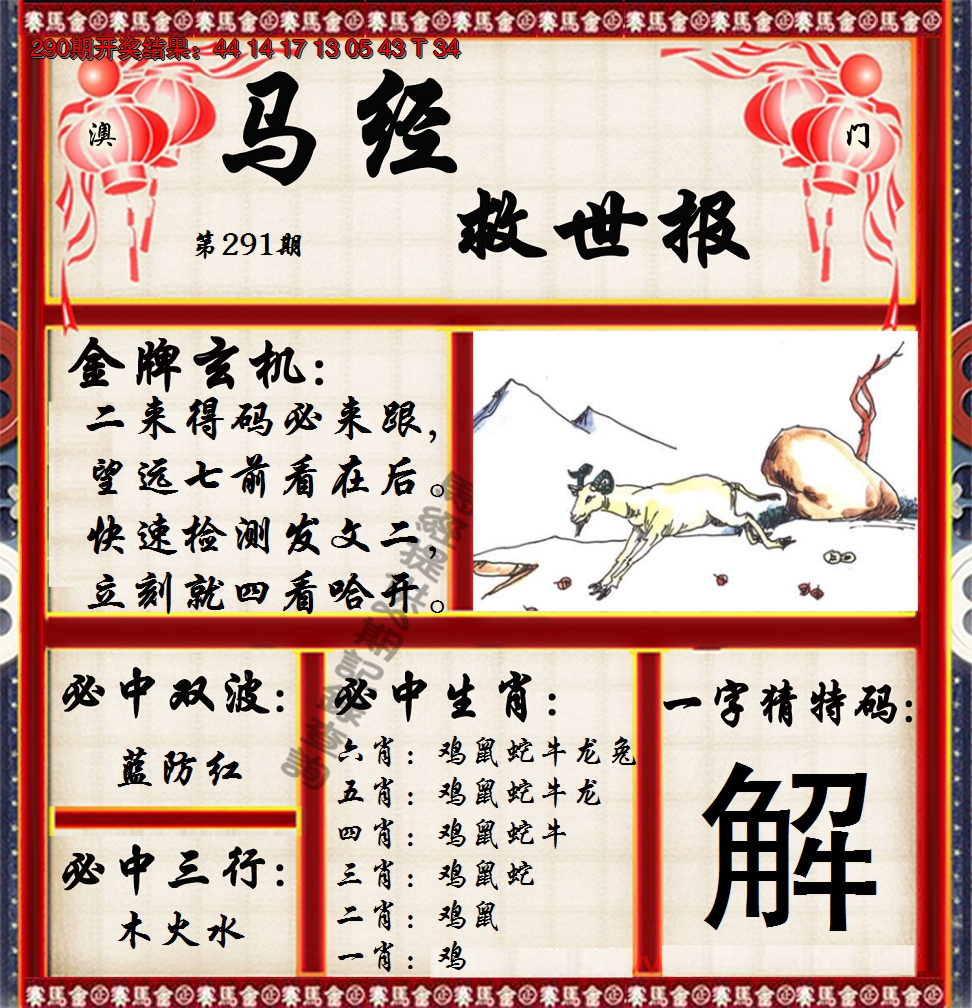 290期开奖结果：44 14 17 13 05 43 T 34
澳
门
马经
救世报
第291期
金牌玄机：
二来得码必来跟，
望远七前看在后。
快速检测发文二，
立刻就四看哈开。
必中双波：
蓝防红
必中三行：
木火水
必中生肖：
六肖：鸡鼠蛇牛龙兔
五肖：鸡鼠蛇牛龙
四肖：鸡鼠蛇牛
三肖：鸡鼠蛇
二肖：鸡鼠
一肖：鸡
一字猜特码：
解